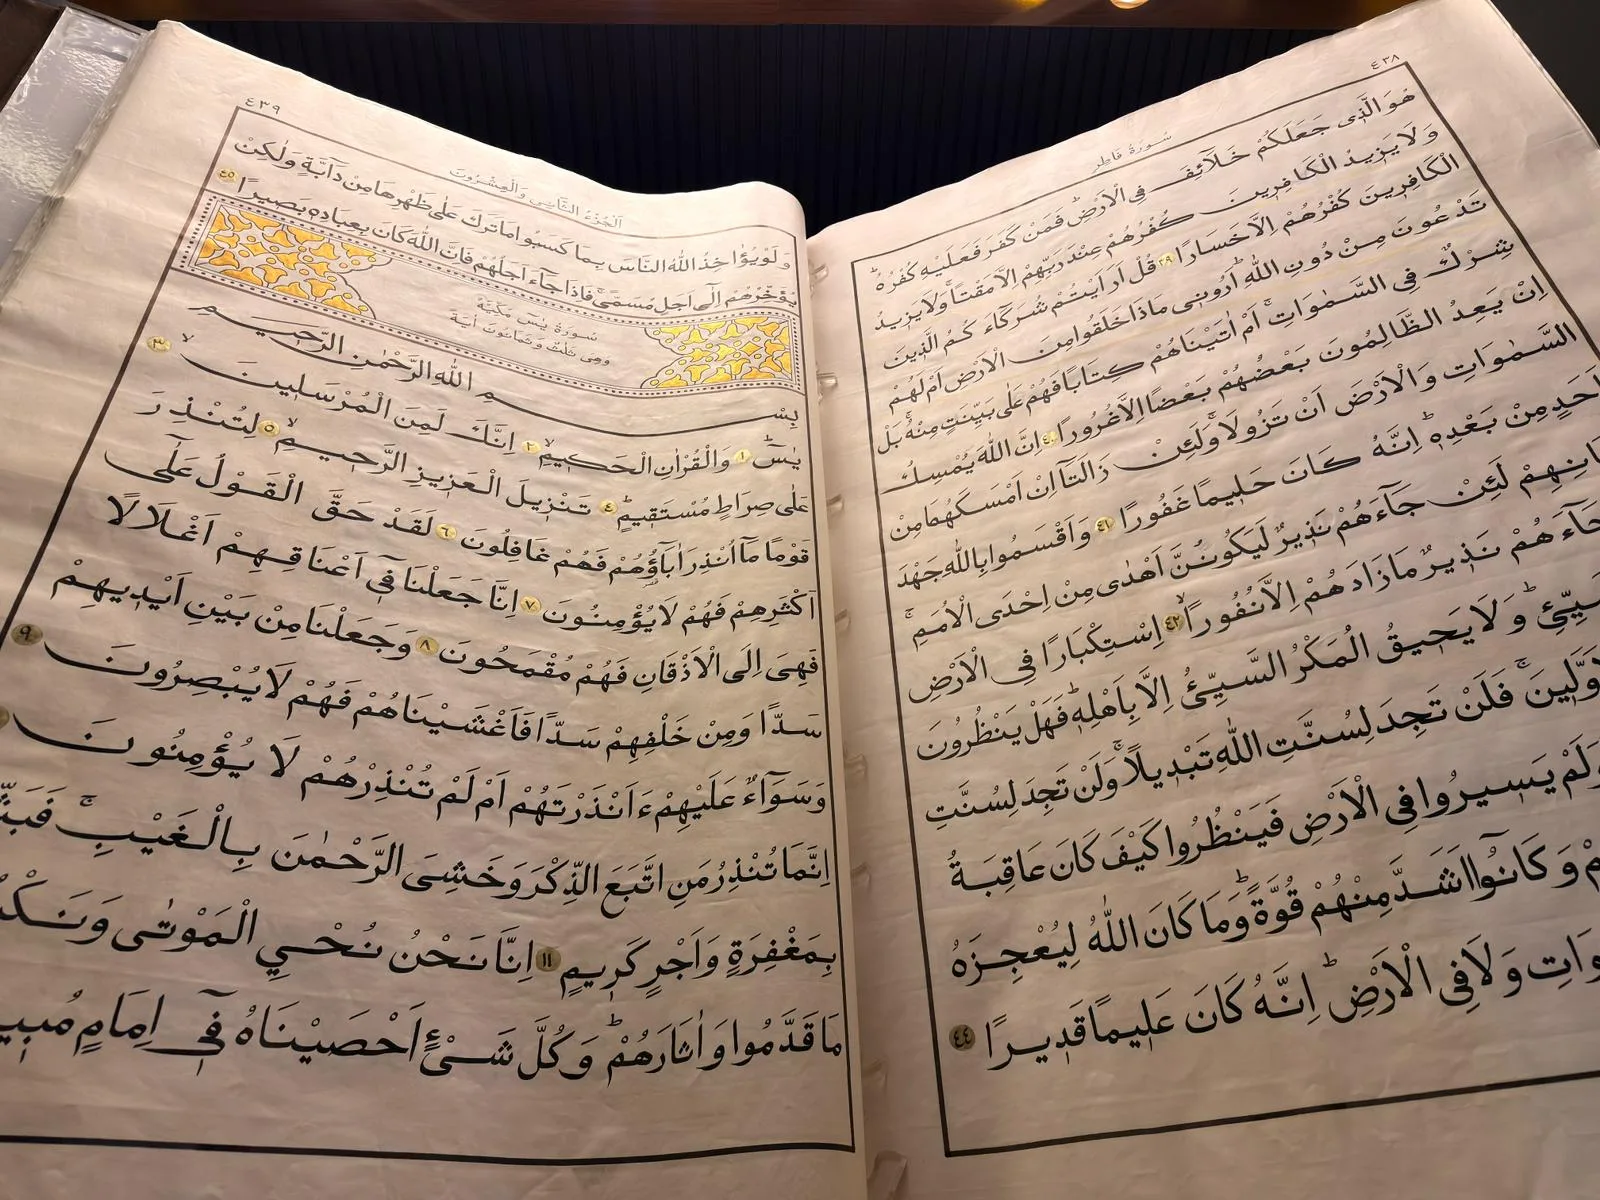 ٤٣٨
سُورَةُ فَاطِرٍ
هُوَ الَّذِى جَعَلَكُمْ خَلَآئِفَ فِى الْاَرْضِ فَمَنْ كَفَرَ فَعَلَيْهِ كُفْرُهُ
وَلَا يَزِيدُ الْكَافِرِينَ كُفْرُهُمْ عِنْدَ رَبِّهِمْ اِلَّا مَقْتًا وَلَا يَزِيدُ
الْكَافِرِينَ كُفْرُهُمْ اِلَّا خَسَارًا ٣٩ قُلْ اَرَاَيْتُمْ شُرَكَآءَ كُمُ الَّذِينَ
تَدْعُونَ مِنْ دُونِ اللّٰهِ اَرُونِى مَاذَا خَلَقُوا مِنَ الْاَرْضِ اَمْ لَهُمْ
شِرْكٌ فِى السَّمٰوَاتِ اَمْ اٰتَيْنَاهُمْ كِتَابًا فَهُمْ عَلٰى بَيِّنَتٍ مِنْهُ بَلْ
اِنْ يَعِدُ الظَّالِمُونَ بَعْضُهُمْ بَعْضًا اِلَّا غُرُورًا ٤٠ اِنَّ اللّٰهَ يُمْسِكُ
السَّمٰوَاتِ وَالْاَرْضَ اَنْ تَزُولَا وَلَئِنْ زَالَتَا اِنْ اَمْسَكَهُمَا مِنْ
اَحَدٍ مِنْ بَعْدِهِ اِنَّهُ كَانَ حَلِيمًا غَفُورًا ٤١ وَاَقْسَمُوا بِاللّٰهِ جَهْدَ
لَئِنْ جَآءَهُمْ نَذِيرٌ لَيَكُونُنَّ اَهْدٰى مِنْ اِحْدَى الْاُمَمِ
جَآءَهُمْ نَذِيرٌ مَا زَادَهُمْ اِلَّا نُفُورًا ٤٢ اِسْتِكْبَارًا فِى الْاَرْضِ
وَلَا يَحِيقُ الْمَكْرُ السَّيِّئُ اِلَّا بِاَهْلِهِ فَهَلْ يَنْظُرُونَ
فَلَنْ تَجِدَ لِسُنَّتِ اللّٰهِ تَبْدِيلًا وَلَنْ تَجِدَ لِسُنَّتِ
وَلَمْ يَسِيرُوا فِى الْاَرْضِ فَيَنْظُرُوا كَيْفَ كَانَ عَاقِبَةُ
وَكَانُوا اَشَدَّ مِنْهُمْ قُوَّةً وَمَا كَانَ اللّٰهُ لِيُعْجِزَهُ
وَلَا فِى الْاَرْضِ اِنَّهُ كَانَ عَلِيمًا قَدِيرًا ٤٤
٤٣٩
اَلْجُزْءُ الثَّانِى وَالْعِشْرُونَ
وَلَوْ يُؤَاخِذُ اللّٰهُ النَّاسَ بِمَا كَسَبُوا مَا تَرَكَ عَلٰى ظَهْرِهَا مِنْ دَآبَّةٍ وَلٰكِنْ
يُؤَخِّرُهُمْ اِلٰٓى اَجَلٍ مُسَمًّى فَاِذَا جَآءَ اَجَلُهُمْ فَاِنَّ اللّٰهَ كَانَ بِعِبَادِهِ بَصِيرًا ٤٥
سُورَةُ يٰسٓ مَكِّيَّةٌ
وَهِىَ ثَلٰثٌ وَثَمَانُونَ اٰيَةً
بِسْمِ اللّٰهِ الرَّحْمٰنِ الرَّحِيمِ
يٰسٓ ١ وَالْقُرْاٰنِ الْحَكِيمِ ٢ اِنَّكَ لَمِنَ الْمُرْسَلِينَ ٣
عَلٰى صِرَاطٍ مُسْتَقِيمٍ ٤ تَنْزِيلَ الْعَزِيزِ الرَّحِيمِ ٥ لِتُنْذِرَ
قَوْمًا مَآ اُنْذِرَ اٰبَآؤُهُمْ فَهُمْ غَافِلُونَ ٦ لَقَدْ حَقَّ الْقَوْلُ عَلٰٓى
اَكْثَرِهِمْ فَهُمْ لَا يُؤْمِنُونَ ٧ اِنَّا جَعَلْنَا فِىٓ اَعْنَاقِهِمْ اَغْلَالًا
فَهِىَ اِلَى الْاَذْقَانِ فَهُمْ مُقْمَحُونَ ٨ وَجَعَلْنَا مِنْ بَيْنِ اَيْدِيهِمْ
سَدًّا وَمِنْ خَلْفِهِمْ سَدًّا فَاَغْشَيْنَاهُمْ فَهُمْ لَا يُبْصِرُونَ ٩
وَسَوَآءٌ عَلَيْهِمْ ءَاَنْذَرْتَهُمْ اَمْ لَمْ تُنْذِرْهُمْ لَا يُؤْمِنُونَ
اِنَّمَا تُنْذِرُ مَنِ اتَّبَعَ الذِّكْرَ وَخَشِىَ الرَّحْمٰنَ بِالْغَيْبِ
بِمَغْفِرَةٍ وَاَجْرٍ كَرِيمٍ ١١ اِنَّا نَحْنُ نُحْيِى الْمَوْتٰى
مَا قَدَّمُوا وَاٰثَارَهُمْ وَكُلَّ شَىْءٍ اَحْصَيْنَاهُ فِىٓ اِمَامٍ